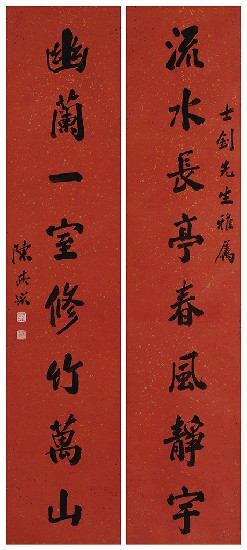 流水長亭春風靜宇
士釗先生雅屬
幽蘭一室修竹萬山
陳其采